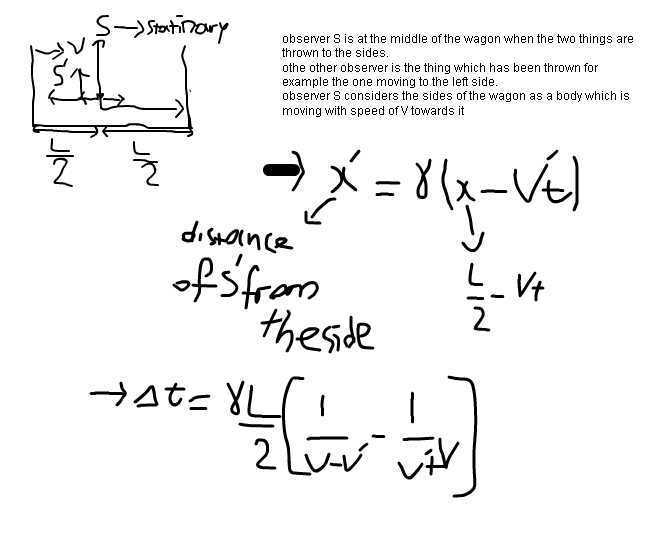 S → stationary
observer S is at the middle of the wagon when the two things are
thrown to the sides.
othe other observer is the thing which has been thrown for
example the one moving to the left side.
observer S considers the sides of the wagon as a body which is
moving with speed of V towards it
→ V
S'
L/2 L/2
→ x' = γ(x - V't)
distance
of s' from
the side
L/2 - Vt
→ Δt = γL/2 [1/(V-V') - 1/(V'+V)]